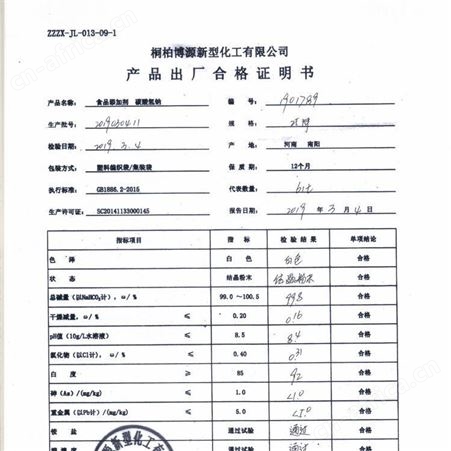 ZZZX-JL-013-09-1
桐柏博源新型化工有限公司
产品出厂合格证明书
产品名称: 食品添加剂 碳酸氢钠 编号: A01789
生产批号: 2019030411 规格:
检验日期: 2019.3.4 产地: 河南 南阳
包装方式: 塑料编织袋/集装袋 保质期: 12个月
执行标准: GB1886.2-2015 代表数量: 61t
生产许可证: SC20141133000145 报告日期: 2019年3月4日
指标项目 指标 检验结果 单项结论
色泽 白色 白色 合格
状态 结晶粉末 结晶粉末 合格
总碱量(以NaHCO₃计), ω/% 99.0~100.5 99.8 合格
干燥减量, ω/% ≤ 0.20 0.16 合格
pH值(10g/L水溶液) ≤ 8.5 8.4 合格
氯化物(以Cl计), ω/% ≤ 0.40 0.31 合格
白度 ≥ 85 92 合格
砷(As)/(mg/kg) ≤ 1.0 <1.0 合格
重金属(以Pb计)/(mg/kg) ≤ 5.0 <5.0 合格
铵盐 通过试验 通过 合格
通过试验 通过 合格
新型化工有